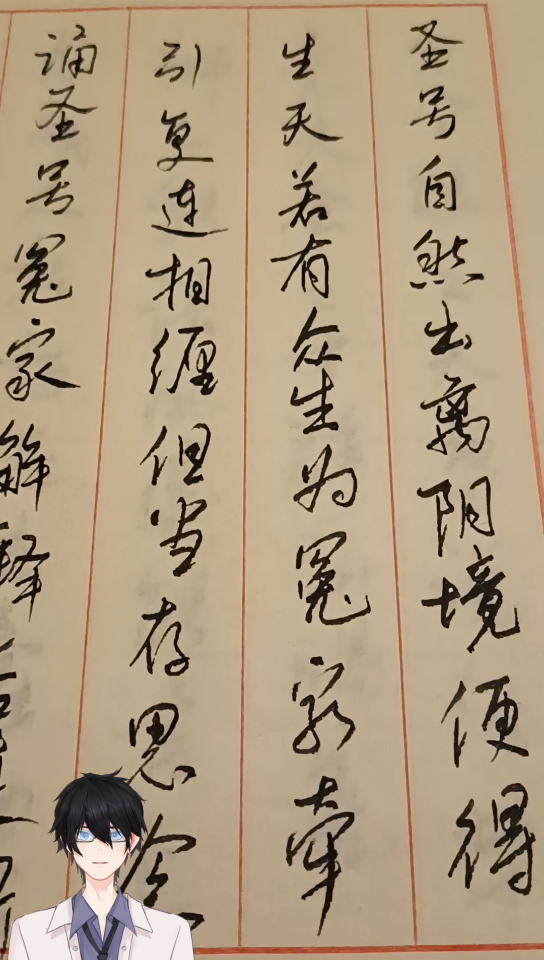 圣号自然出离阴境便得
生天若有众生为冤家牵
引更连相缠但当存思念
诵圣号冤家解释